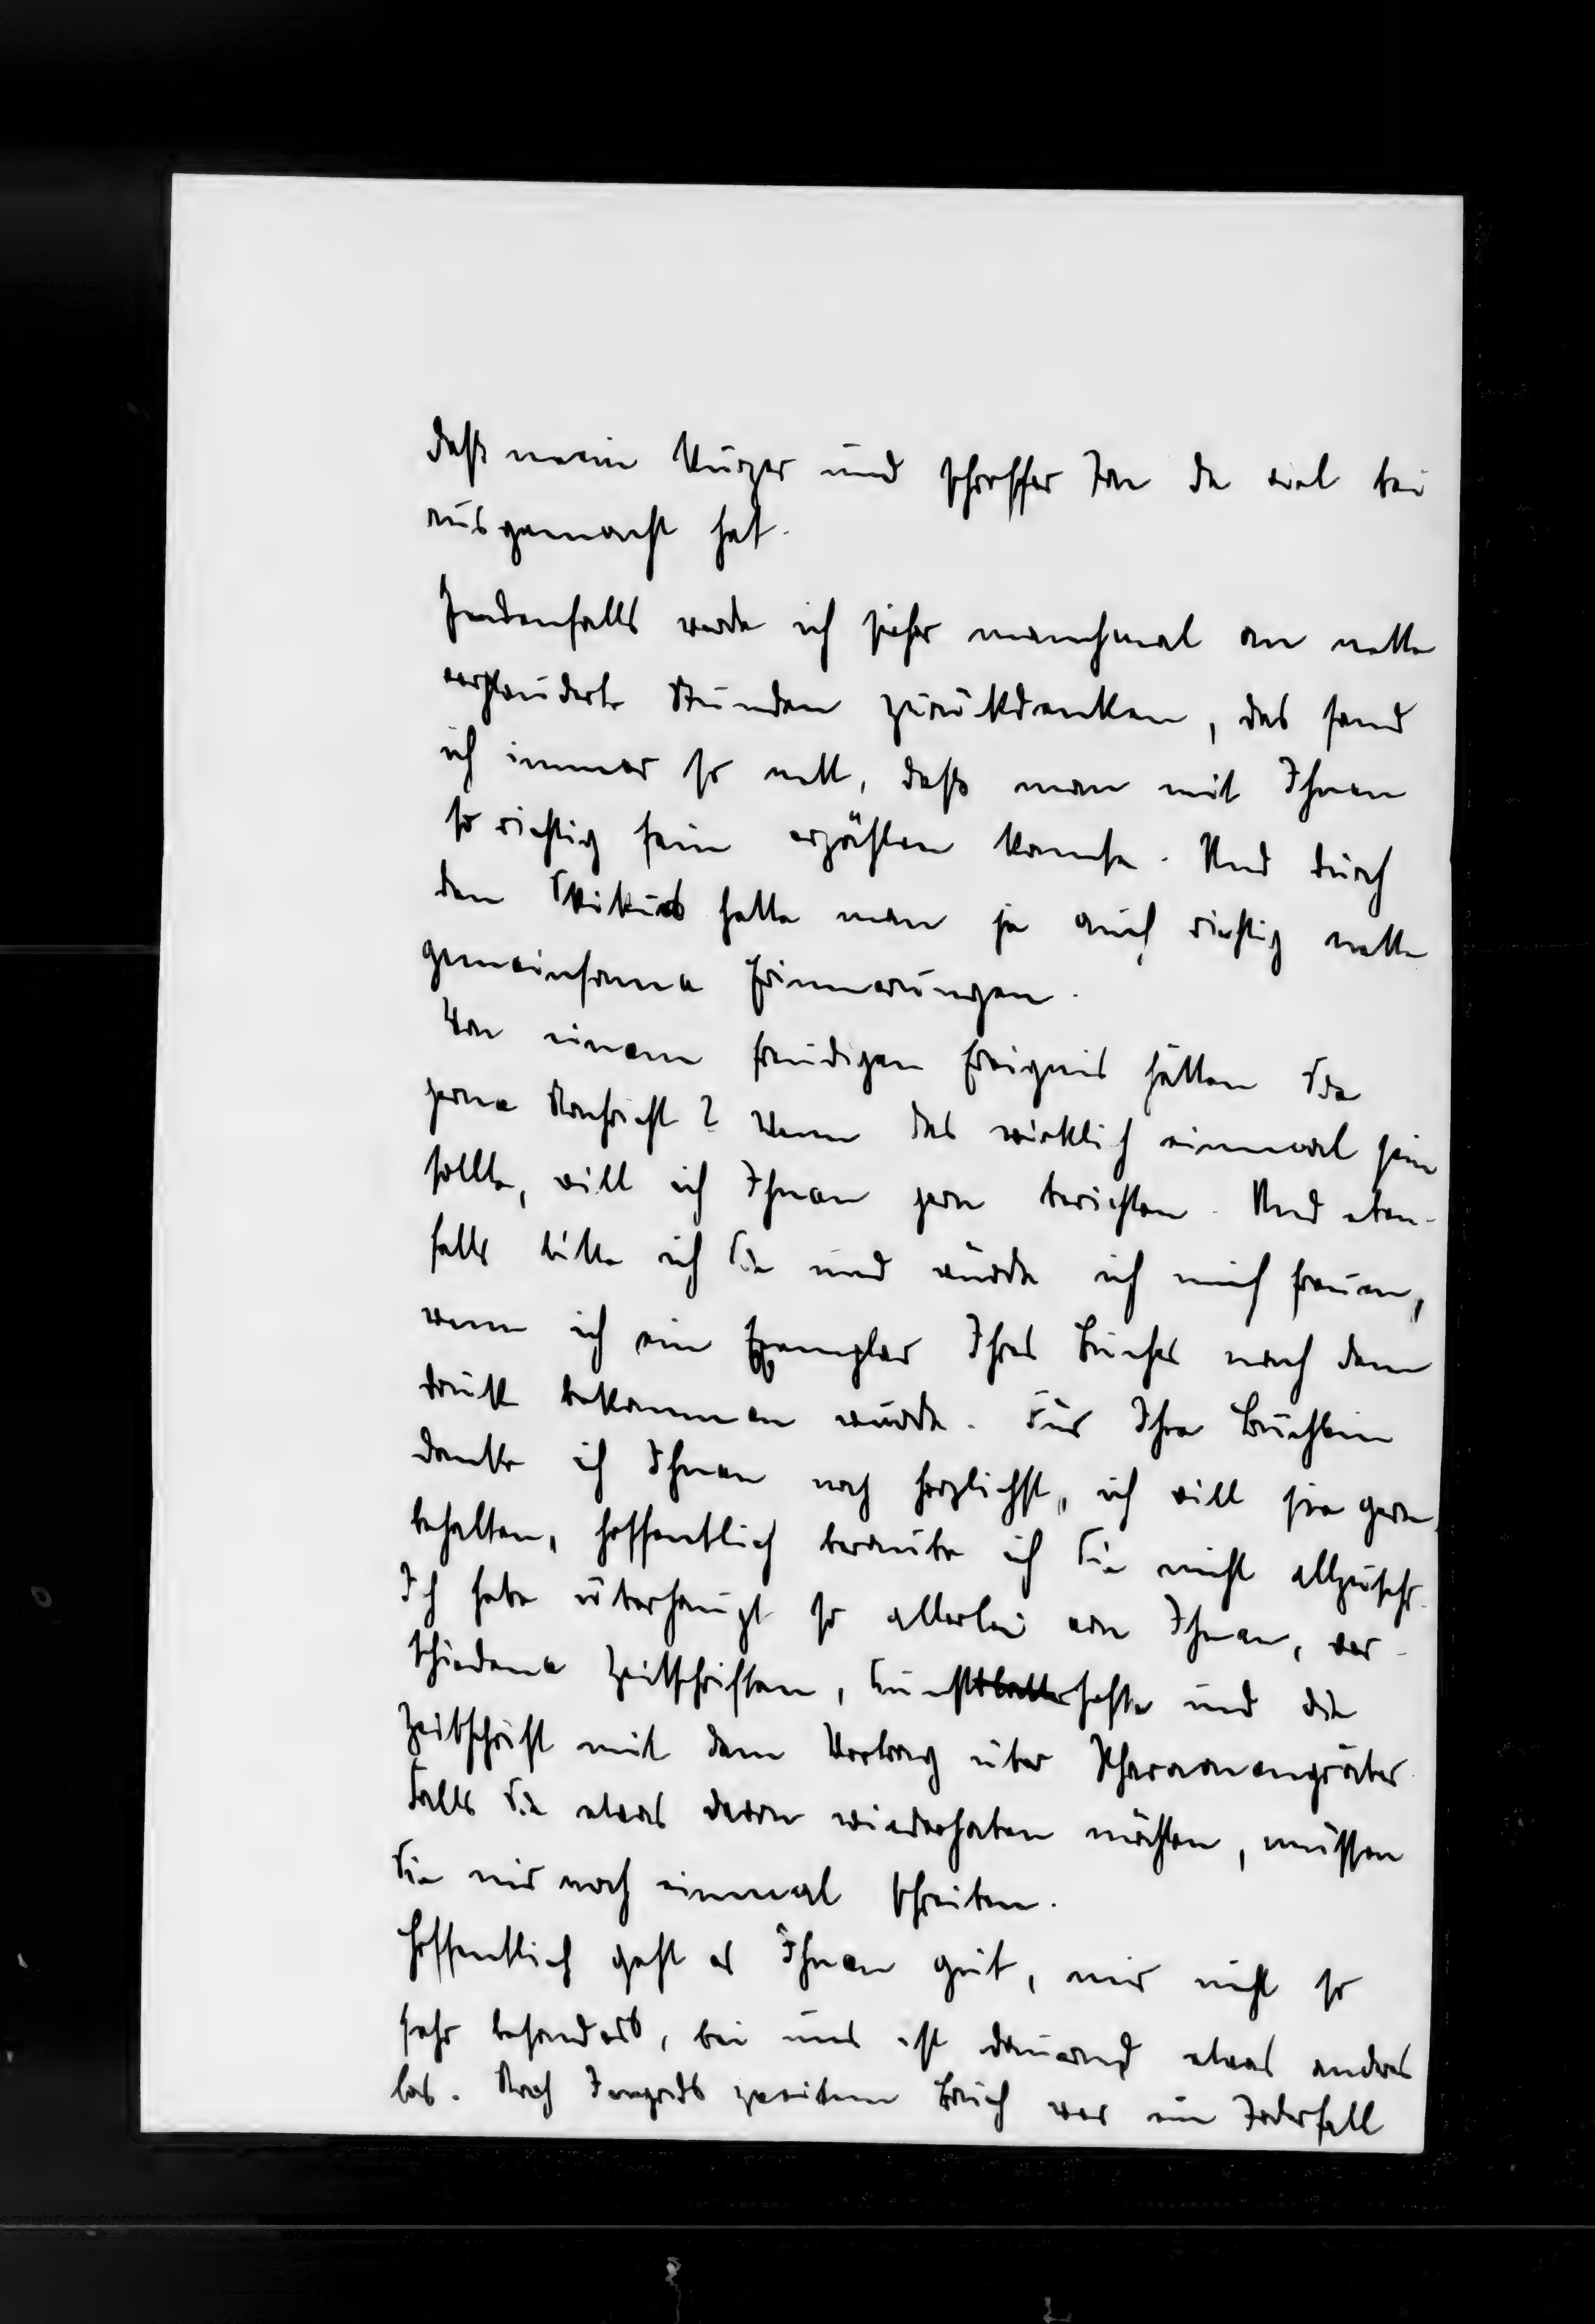 daß mein kurzer und schroffer Ton da viel bei
ausgemacht hat.
Jedenfalls werde ich sicher manchmal an nette
verplauderte Stunden zurückdenken, das fand
ich immer so nett, daß man mit Ihnen
so richtig fein erzählen konnte. Und durch
den Skikurs hatte man ja auch richtig nette
gemeinsame Erinnerungen.
Von einem freudigen Ereignis hätten Sie
gerne Nachricht? Wenn das wirklich einmal sein
sollte, will ich Ihnen gern berichten. Und eben-
falls bitte ich Sie und würde ich mich freuen,
wenn ich ein Exemplar Ihres Buches nach dem
Druck bekommen würde. Für Ihre Büchlein
danke ich Ihnen noch herzlichst, ich will sie gern
behalten, hoffentlich beraube ich Sie nicht allzusehr.
Ich habe überhaupt so allerlei von Ihnen, ver-
schiedene Zeitschriften, Kunsthefte und die
Zeitschrift mit dem Vortrag über Pharaonengräber.
Falls Sie etwas davon wiederhaben möchten, müssen
Sie mir noch einmal schreiben.
Hoffentlich geht es Ihnen gut, mir nicht so
sehr besonders, bei uns ist dauernd etwas andres
los. Nach Irmgards zweitem Bruch war ein Todesfall